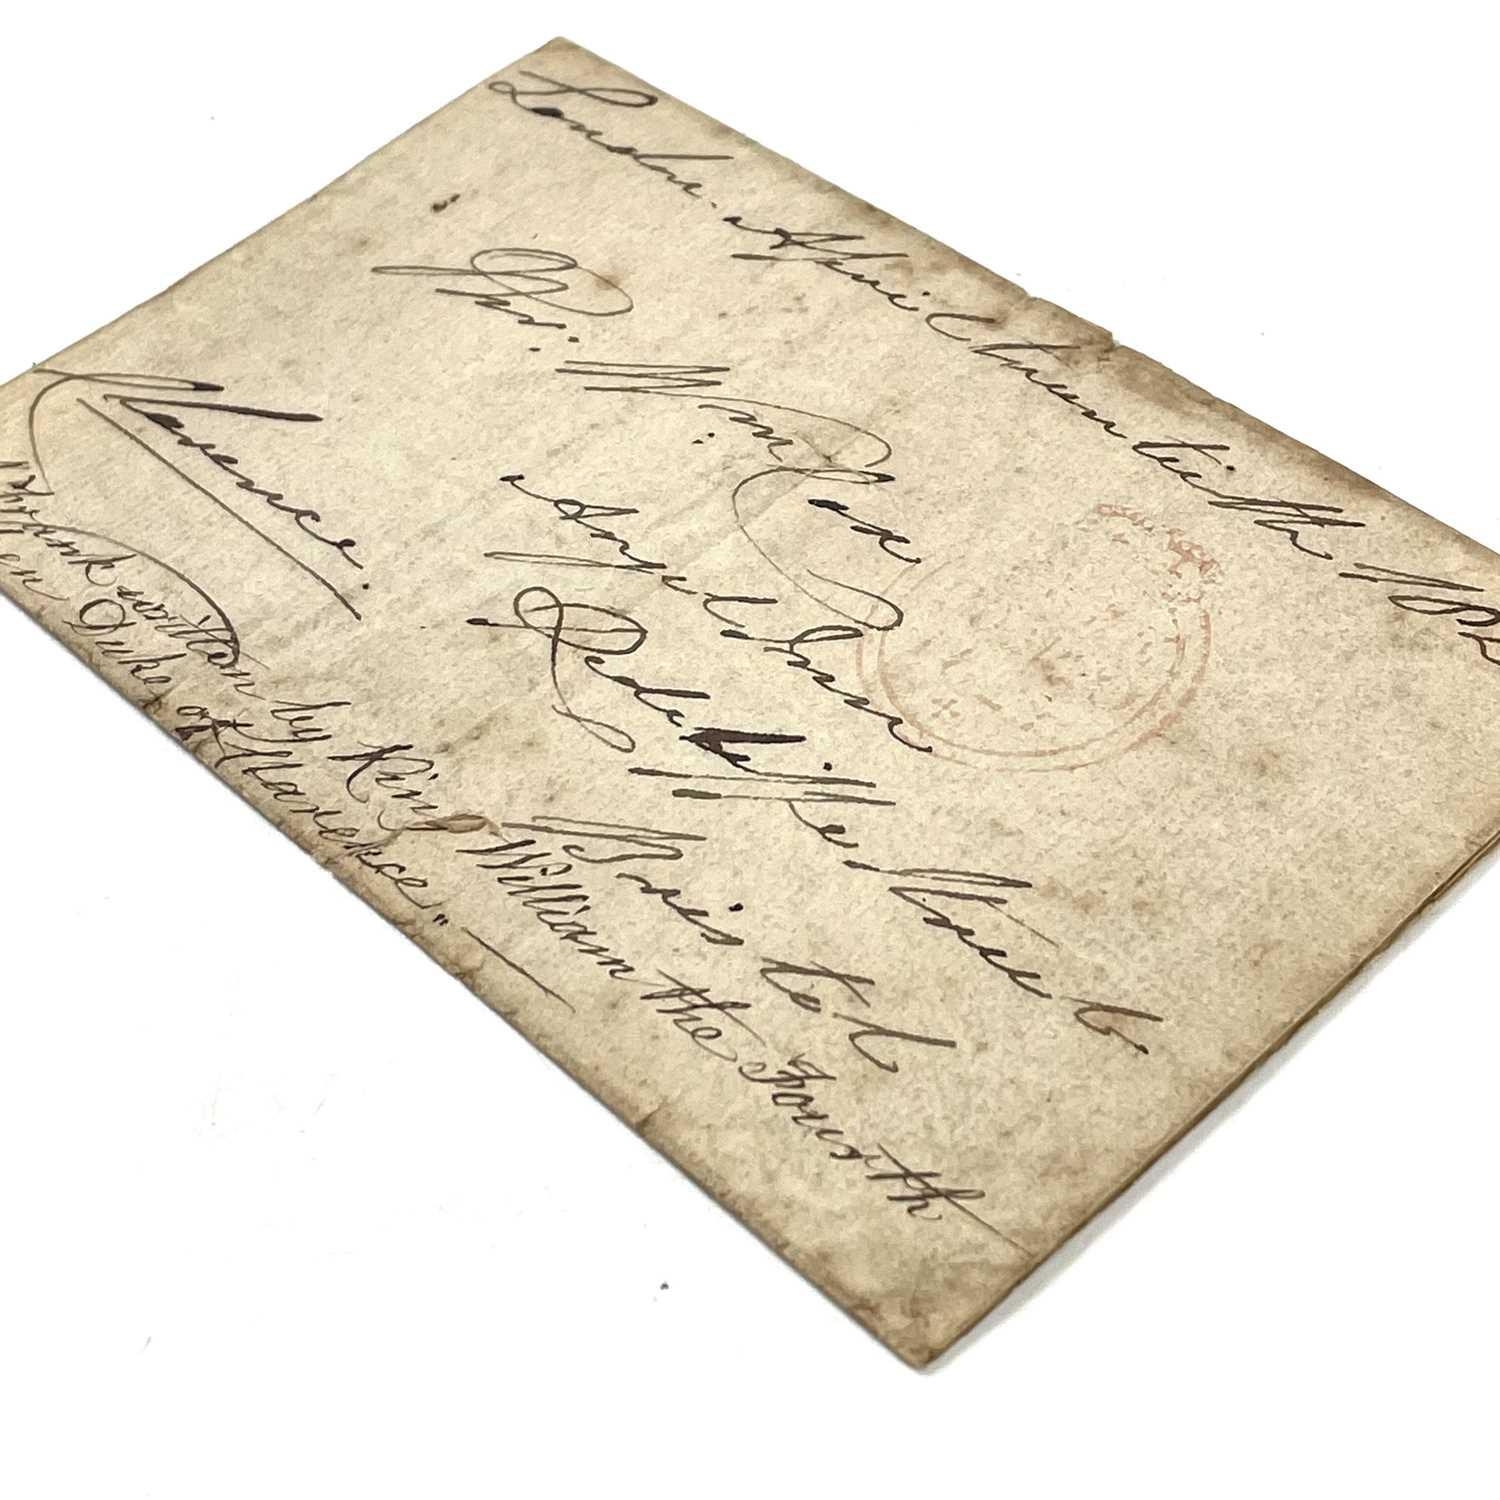 London. April twentieth 180
Mr. Wm. Cox
Angel Inn
Redcliffe Street
Bristol
Clarence.
Frank written by King William the Fourth
Duke of Clarence."